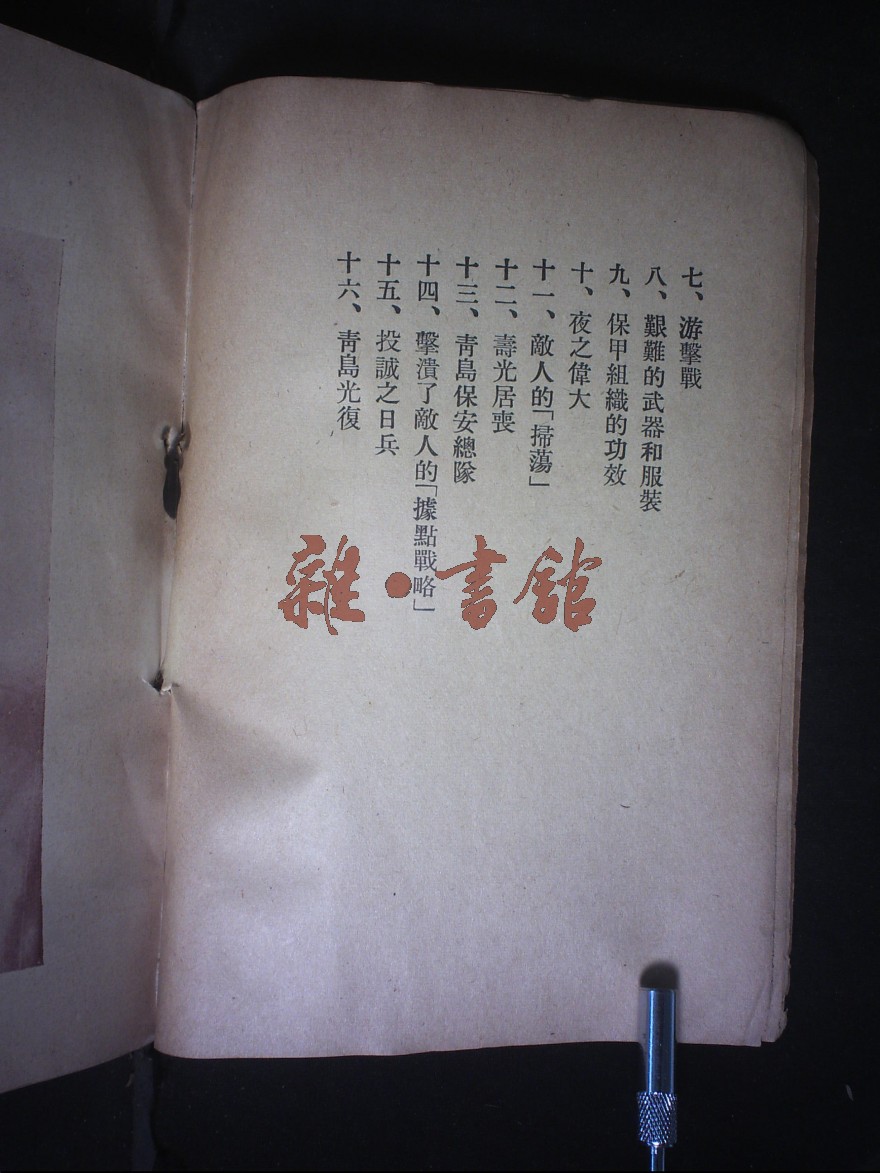 七、游擊戰
八、艱難的武器和服裝
九、保甲組織的功效
十、夜之偉大
十一、敵人的「掃蕩」
十二、壽光居喪
十三、青島保安總隊
十四、擊潰了敵人的「據點戰略」
十五、投誠之日兵
十六、青島光復
雜•書館